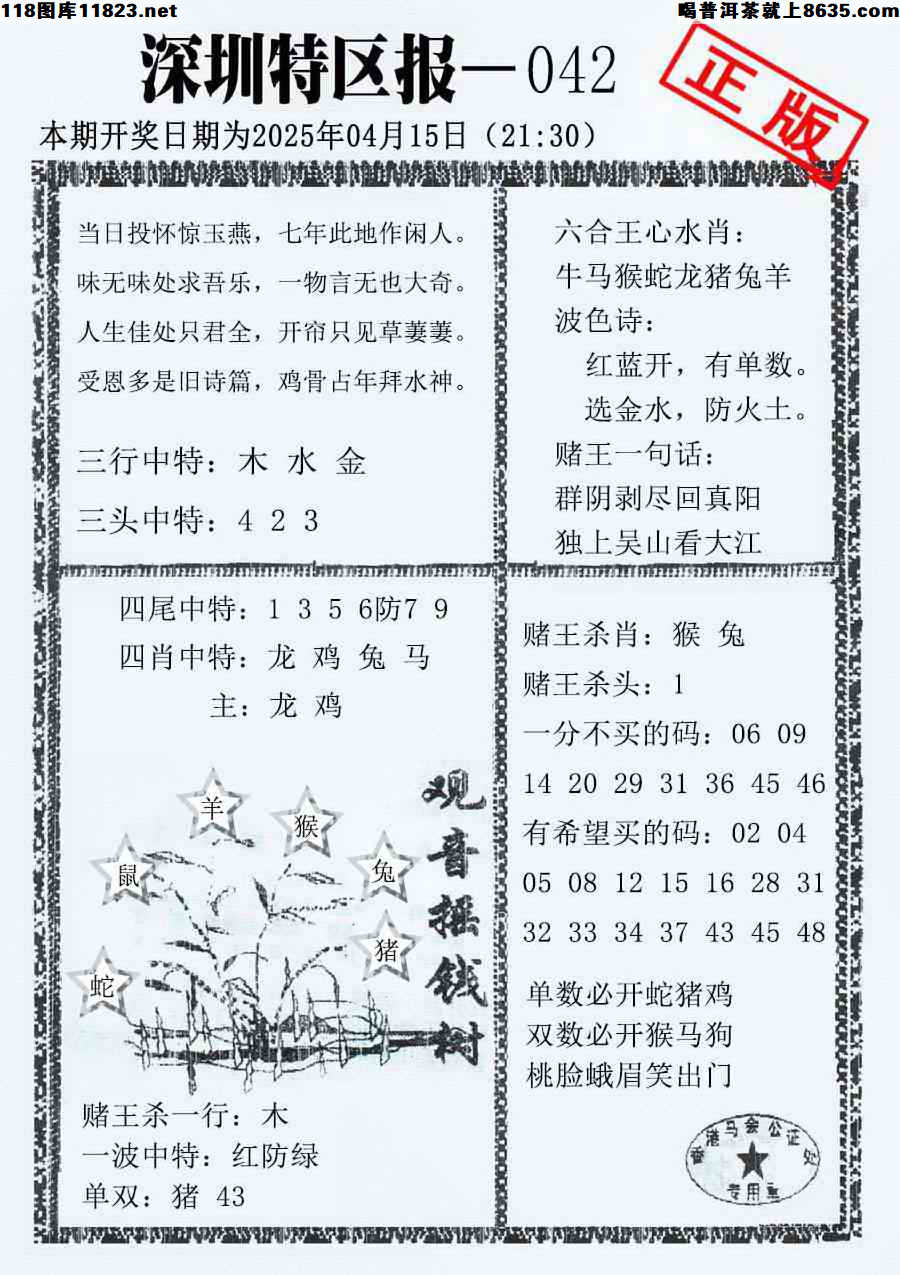 118图库11823.net
喝普洱茶就上8635.com
深圳特区报—042
正版
本期开奖日期为2025年04月15日（21:30）
当日投怀惊玉燕，七年此地作闲人。
味无味处求吾乐，一物言无也大奇。
人生佳处只君全，开帘只见草萋萋。
受恩多是旧诗篇，鸡骨占年拜水神。
三行中特：木 水 金
三头中特：4 2 3
六合王心水肖：
牛马猴蛇龙猪兔羊
波色诗：
红蓝开，有单数。
选金水，防火土。
赌王一句话：
群阴剥尽回真阳
独上吴山看大江
四尾中特：1 3 5 6防7 9
四肖中特：龙 鸡 兔 马
主：龙 鸡
羊
猴
鼠
兔
猪
蛇
观音摇钱树
赌王杀一行：木
一波中特：红防绿
单双：猪 43
赌王杀肖：猴 兔
赌王杀头：1
一分不买的码：06 09
14 20 29 31 36 45 46
有希望买的码：02 04
05 08 12 15 16 28 31
32 33 34 37 43 45 48
单数必开蛇猪鸡
双数必开猴马狗
桃脸蛾眉笑出门
香港马会公证处
专用章